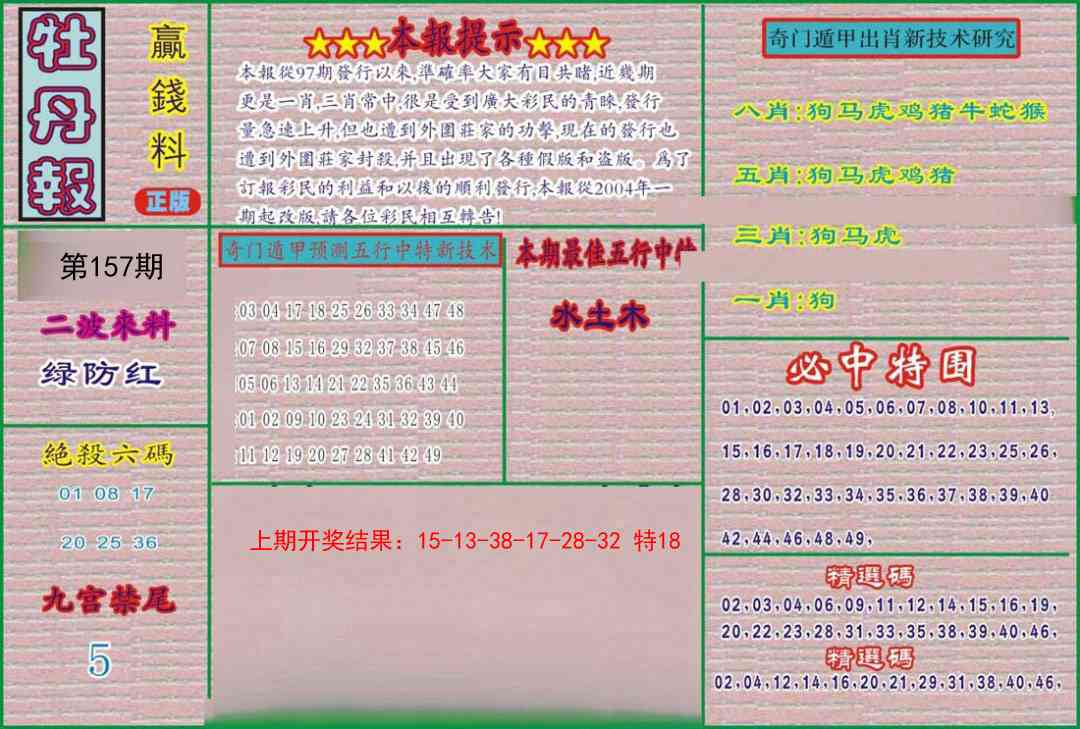 牡丹報
贏錢料
正版
★★★本報提示★★★
本報從97期發行以來,準確率大家有目共睹,近幾期
更是一肖,三肖常中,很是受到廣大彩民的青睞,發行
量急速上升,但也遭到外圍莊家的功擊,現在的發行也
遭到外圍莊家封殺,并且出現了各種假版和盜版。爲了
訂報彩民的利益和以後的順利發行,本報從2004年一
期起改版,請各位彩民相互轉告!
奇门遁甲出肖新技术研究
八肖:狗马虎鸡猪牛蛇猴
五肖:狗马虎鸡猪
三肖:狗马虎
一肖:狗
第157期
二波來料
绿防红
奇门遁甲预测五行中特新技术
03 04 17 18 25 26 33 34 47 48
07 08 15 16 29 32 37 38 45 46
05 06 13 14 21 22 35 36 43 44
01 02 09 10 23 24 31 32 39 40
11 12 19 20 27 28 41 42 49
本期最佳五行中
水土木
必中特围
01,02,03,04,05,06,07,08,10,11,13,
15,16,17,18,19,20,21,22,23,25,26,
28,30,32,33,34,35,36,37,38,39,40
42,44,46,48,49,
絶殺六碼
01 08 17
20 25 36
九宫禁尾
5
上期开奖结果：15-13-38-17-28-32 特18
精選碼
02,03,04,06,09,11,12,14,15,16,19,
20,22,23,28,31,33,35,38,39,40,46,
精選碼
02,04,12,14,16,20,21,29,31,38,40,46,